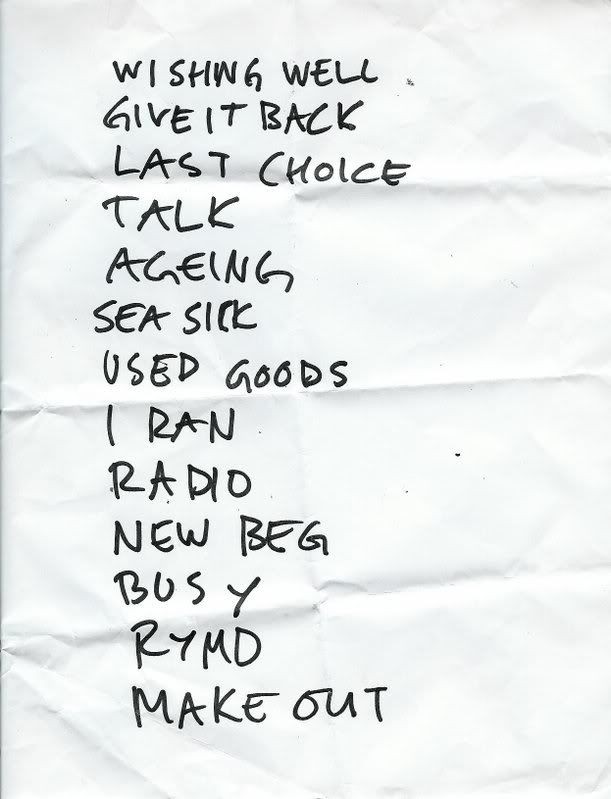 WISHING WELL
GIVE IT BACK
LAST CHOICE
TALK
AGEING
SEA SICK
USED GOODS
I RAN
RADIO
NEW BEG
BUSY
RYMD
MAKE OUT